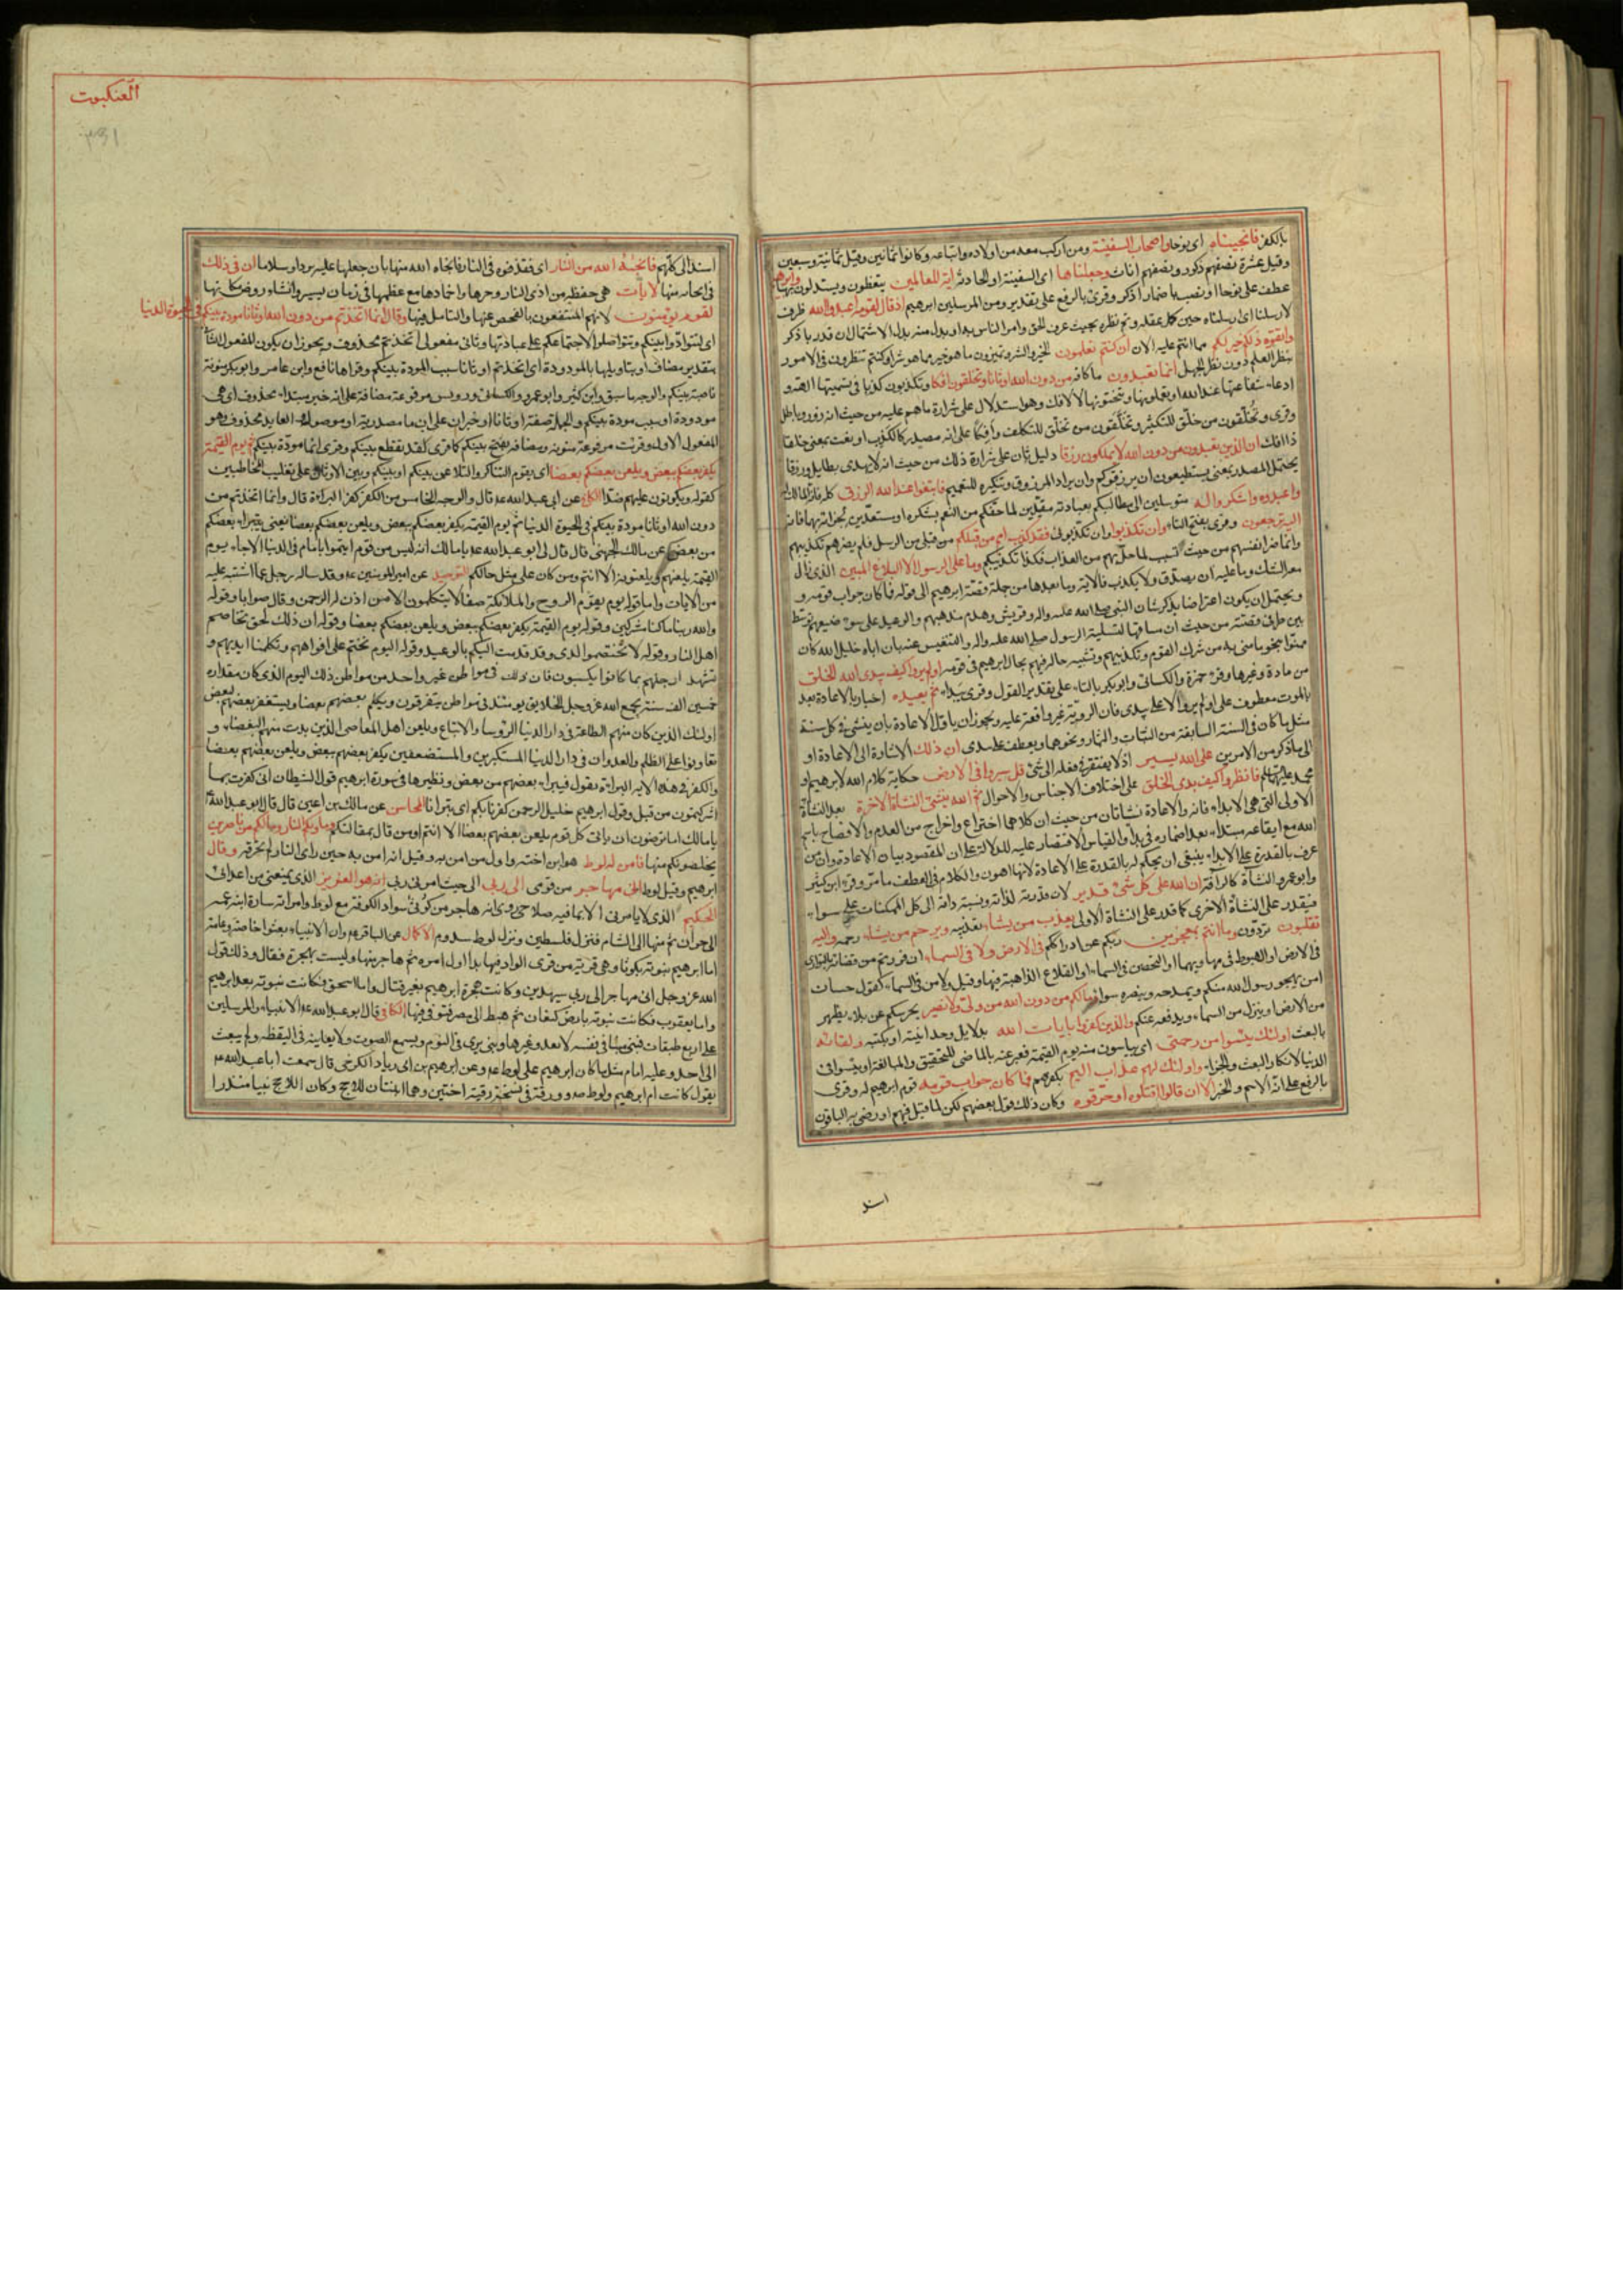 العنكبوت
بالكفر فانجيناه اى نوحا واصحاب السفينة ومن اركب معه من اولاده واتباعه وكانوا ثمانين وقيل ثمانية وسبعين
وقيل عشرة نصفهم ذكور ونصفهم اناث وجعلناها اى السفينة او الحادثة اية للعالمين يتعظون ويستدلون بها وابرهيم
عطف على نوحا او نصب باضمار اذكر وقرئ بالرفع على تقدير ومن المرسلين ابرهيم اذ قال لقومه اعبدوا الله ظرف
لارسلنا اى ارسلناه حين كمل عقله وتم نظره بحيث عرف الحق وامر الناس به او بدل منه بدل الاشتمال ان قدر باذكر
واتقوه ذلكم خير لكم مما انتم عليه الان ان كنتم تعلمون الخير والشر وتميزون ما هو خير مما هو شر او كنتم تنظرون فى الامور
بنظر العلم دون نظر الجهل انما تعبدون من دون الله اوثانا وتخلقون افكا وتكذبون كذبا فى تسميتها الهة و
ادعاء شفاعتها عند الله او تعملونها وتنحتونها للافك وهو استدلال على شرارة ما هم عليه من حيث انه زور وباطل
وقرئ وتخلقون من خلق للتكثير وتخلقون من تخلق للتكلف وافكا على انه مصدر كالكذب او نعت بمعنى خلقا
ذا افك ان الذين تعبدون من دون الله لا يملكون رزقا دليل ثان على شرارة ذلك من حيث انه لا يجدى بطايل ورزقا
يحتمل المصدر بمعنى لا يستطيعون ان يرزقوكم وان يراد المرزوق وتنكيره للتعميم فابتغوا عند الله الرزق كله فانه المالك له
واعبدوه واشكروا له متوسلين الى مطالبكم بعبادته مقيدين لما حفكم من النعم بشكره او مستعدين للقائه بهما فانه
اليه ترجعون وقرئ بفتح التاء وان تكذبوا وان تكذبونى فقد كذب امم من قبلكم من قبلى من الرسل فلم يضرهم تكذيبهم
وانما ضر انفسهم من حيث تسبب لما حل بهم من العذاب فكذا تكذيبكم وما على الرسول الا البلاغ المبين الذى زال
معه الشك وما عليه ان يصدق ولا يكذب فالاية وما بعدها من جملة قصة ابرهيم الى قوله فما كان جواب قومه و
ويحتمل ان يكون اعتراضا بذكر شان النبى صلى الله عليه واله وقريش وهدم مذهبهم والوعيد على سوء صنيعهم توسط
بين طرفى قصته من حيث ان مساقها لتسلية الرسول صلى الله عليه واله والتنفيس عنه بان اباه خليل الله كان
ممنوا بنحو ما منى به من شرك القوم وتكذيبهم وتشبيه حاله فيهم بحال ابرهيم فى قومه اولم يروا كيف يبدئ الله الخلق
من مادة وغيرها وقرء حمزة والكسائى وابو بكر بالتاء على تقدير القول وقرئ يبدأ ثم يعيده اخبار بالاعادة بعد
بالموت معطوف على اولم يروا لا على يبدئ فان الروية غير واقعة عليه ويجوز ان ياول الاعادة بان ينشئ فى كل سنة
مثل ما كان فى السنة السابقة من النبات والثمار ونحوهما ويعطف على يبدئ ان ذلك الاشارة الى الاعادة او
الى ما ذكر من الامرين على الله يسير اذ لا يفتقر فى فعله الى شئ قل سيروا فى الارض حكاية كلام الله لابرهيم او
محمد عليهما السلم فانظروا كيف بدئ الخلق على اختلاف الاجناس والاحوال ثم الله ينشئ النشأة الاخرة بعد النشأة
الاولى التى هى الابداء فانه والاعادة نشأتان من حيث ان كلا هما اختراع واخراج من العدم والافصاح باسم
الله مع ايقاعه مبتدأ بعد اضماره فى بدأ والقياس الاقتصار عليه للدلالة على ان المقصود بيان الاعادة وان من
عرف بالقدرة على الابداء ينبغى ان يحكم له بالقدرة على الاعادة لانها اهون والكلام فى العطف ما مر وقرء ابن كثير
وابو عمرو النشاءة كالرآفة ان الله على كل شئ قدير لان قدرته لذاته ونسبة ذاته الى كل الممكنات على سواء
فيقدر على النشأة الاخرى كما قدر على النشأة الاولى يعذب من يشاء تعذيبه ويرحم من يشاء رحمته واليه
تقلبون تردون وما انتم بمعجزين ربكم عن ادراككم فى الارض ولا فى السماء ان فررتم من قضائه بالتوارى
فى الارض او الهبوط فى مهاويها او التحصن فى السماء او القلاع الذاهبة فيها وقيل ولا من فى السماء كقول حسان
امن يهجو رسول الله منكم ويمدحه وينصره سواء وما لكم من دون الله من ولى ولا نصير يحرسكم عن بلاء يظهر
من الارض او ينزل من السماء ويدفعه عنكم والذين كفروا بايات الله بدلايل وحدانيته او بكتبه ولقائه
بالبعث اولئك يئسوا من رحمتى اى يياسون منه يوم القيمة فعبر عنه بالماضى للتحقيق والمبالغة او يئسوا فى
الدنيا لانكار البعث والجزاء واولئك لهم عذاب اليم بكفرهم فما كان جواب قومه قوم ابرهيم له وقرئ
بالرفع على انه الاسم والخبر الا ان قالوا اقتلوه او حرقوه وكان ذلك قول بعضهم لكن لما قيل فيهم او رضى به الباقون
اسند
اسند الى كلهم فانجيه الله من النار اى فقذفوه فى النار فانجاه الله منها بان جعلها عليه بردا وسلاما ان فى ذلك
فى انجائه منها لايات هى حفظه من اذى النار وحرها واخمادها مع عظمها فى زمان يسير وانشاء روض مكانها
لقوم يؤمنون لانهم المنتفعون بالفحص عنها والتامل فيها وقال انما اتخذتم من دون الله اوثانا مودة بينكم فى الحيوة الدنيا
اى لتوادوا بينكم وتتواصلوا لاجتماعكم على عبادتها وثانى مفعولى اتخذتم محذوف ويجوز ان يكون المفعول الثانى
بتقدير مضاف او بتاويلها بالمودودة اى اتخذتم اوثانا سبب المودة بينكم وقراها نافع وابن عامر وابو بكر منونة
ناصبة بينكم والوجه ما سبق وابن كثير وابو عمرو والكسائى ورويس مرفوعة مضافة على انه خبر مبتداء محذوف اى هى
مودودة او سبب مودة بينكم والجملة صفة اوثانا او خبر ان على ان ما مصدرية او موصولة والعايد محذوف وهو
المفعول الاول وقرئت مرفوعة منونة ومضافة بفتح بينكم كما قرئ لقد تقطع بينكم وقرئ انما مودة بينكم ثم يوم القيمة
يكفر بعضكم ببعض ويلعن بعضكم بعضا اى يقوم التناكر والتلاعن بينكم او بينكم وبين الاوثان على تغليب المخاطبين
كقوله ويكونون عليهم ضدا الكافى عن ابى عبد الله ع قال والوجه الخامس من الكفر كفر البراءة قال وانما اتخذتم من
دون الله اوثانا مودة بينكم فى الحيوة الدنيا ثم يوم القيمة يكفر بعضكم ببعض ويلعن بعضكم بعضا يعنى يتبرأ بعضكم
من بعض عن مالك الجهنى قال قال لى ابو عبد الله ع يا مالك انه ليس من قوم ائتموا بامام فى الدنيا الا جاء يوم
القيمة يلعنهم ويلعنونه الا انتم ومن كان على مثل حالكم التوحيد عن امير المومنين ع وقد ساله رجل عما اشتبه عليه
من الايات واما قوله يوم يقوم الروح والملائكة صفا لا يتكلمون الا من اذن له الرحمن وقال صوابا وقوله
والله ربنا ما كنا مشركين وقوله يوم القيمة يكفر بعضكم ببعض ويلعن بعضكم بعضا وقوله ان ذلك لحق تخاصم
اهل النار وقوله لا تختصموا لدى وقد قدمت اليكم بالوعيد وقوله اليوم نختم على افواههم وتكلمنا ايديهم و
تشهد ارجلهم بما كانوا يكسبون فان ذلك فى مواطن غير واحد من مواطن ذلك اليوم الذى كان مقداره
خمسين الف سنة يجمع الله عز وجل الخلايق يومئذ فى مواطن يتفرقون ويكلم بعضهم بعضا ويستغفر بعضهم لبعض
اولئك الذين كان منهم الطاعة فى دار الدنيا الرؤسا والاتباع ويلعن اهل المعاصى الذين بدت منهم البغضاء و
تعاونوا على الظلم والعدوان فى دار الدنيا المستكبرين والمستضعفين يكفر بعضهم ببعض ويلعن بعضهم بعضا
والكفر فى هذه الاية البراءة يقول فيبرأ بعضهم من بعض ونظيرها فى سورة ابرهيم قول الشيطان انى كفرت بما
اشركتمون من قبل وقول ابرهيم خليل الرحمن كفرنا بكم اى تبرأنا المحاسن عن مالك بن اعين قال قال ابو عبد الله ع
يا مالك اما ترضون ان ياتى كل قوم يلعن بعضهم بعضا الا انتم ومن قال بمقالتكم وماويكم النار وما لكم من ناصرين
يخلصونكم منها فامن له لوط هو ابن اخته واول من امن به وقيل انه امن به حين راى النار لم تحرقه وقال
ابرهيم وقيل لوط انى مهاجر من قومى الى ربى الى حيث امرنى ربى انه هو العزيز الذى يمنعنى من اعدائى
الحكيم الذى لا يامرنى الا بما فيه صلاحى روى انه هاجر من كوثى سواد الكوفة مع لوط وامراته سارة ابنة عمه
الى حران ثم منها الى الشام فنزل فلسطين ونزل لوط سدوم الاكمال عن الباقر ع وان الانبياء بعثوا خاصة وعامة
اما ابرهيم نبوته بكوثا وهى قرية من قرى السواد فيها بدا اول امره ثم هاجر منها وليست بهجرة فقال وذلك قول
الله عز وجل انى مهاجر الى ربى سيهدين وكانت هجرة ابرهيم بغير قتال واما اسحق فكانت نبوته بعد ابرهيم
واما يعقوب فكانت نبوته بارض كنعان ثم هبط الى مصر فتوفى فيها الكافى قال ابو عبد الله ع الانبياء والمرسلين
على اربع طبقات فنبى منبا فى نفسه لا يعدو غيرها ونبى يرى فى النوم ويسمع الصوت ولا يعاينه فى اليقظة ولم يبعث
الى احد وعليه امام مثل ما كان ابرهيم على لوط ع وعن ابرهيم بن ابى زياد الكرخى قال سمعت ابا عبد الله ع
يقول كانت ام ابرهيم ولوط سارة وورقة فى نسخة رقية اختين وهما ابنتان للاحج وكان اللاحج نبيا منذرا